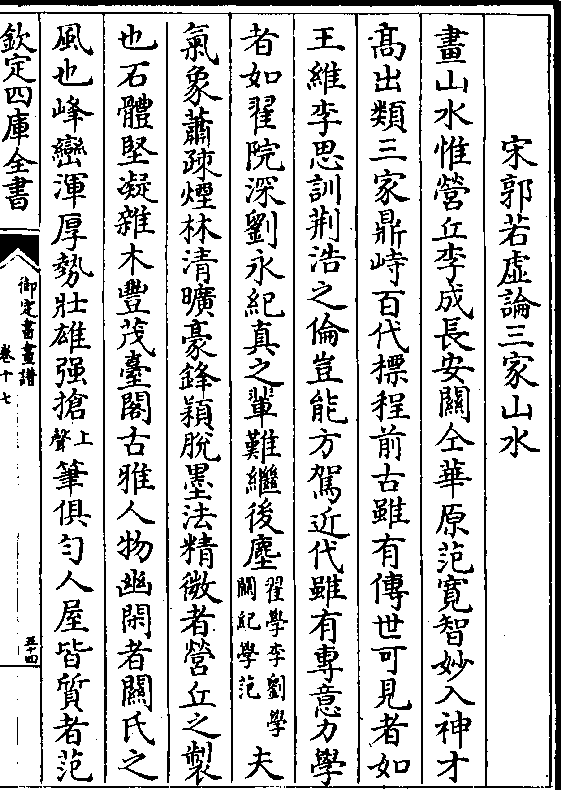 宋郭若虛論三家山水
畫山水惟營丘李成長安關仝華原范寬智妙入神才
高出類三家鼎峙百代標程前古雖有傳世可見者如
王維李思訓荆浩之倫豈能方駕近代雖有專意力學
者如翟院深劉永紀真之輩難繼後塵翟學李劉學關紀學范夫
氣象蕭疎煙林清曠豪鋒穎脫墨法精微者營丘之製
也石體堅凝雜木豐茂臺閣古雅人物幽閑者關氏之
風也峰巒渾厚勢壯雄强搶上聲筆俱勻人屋皆質者范
欽定四庫全書
御定書畫譜
卷十七
五十四